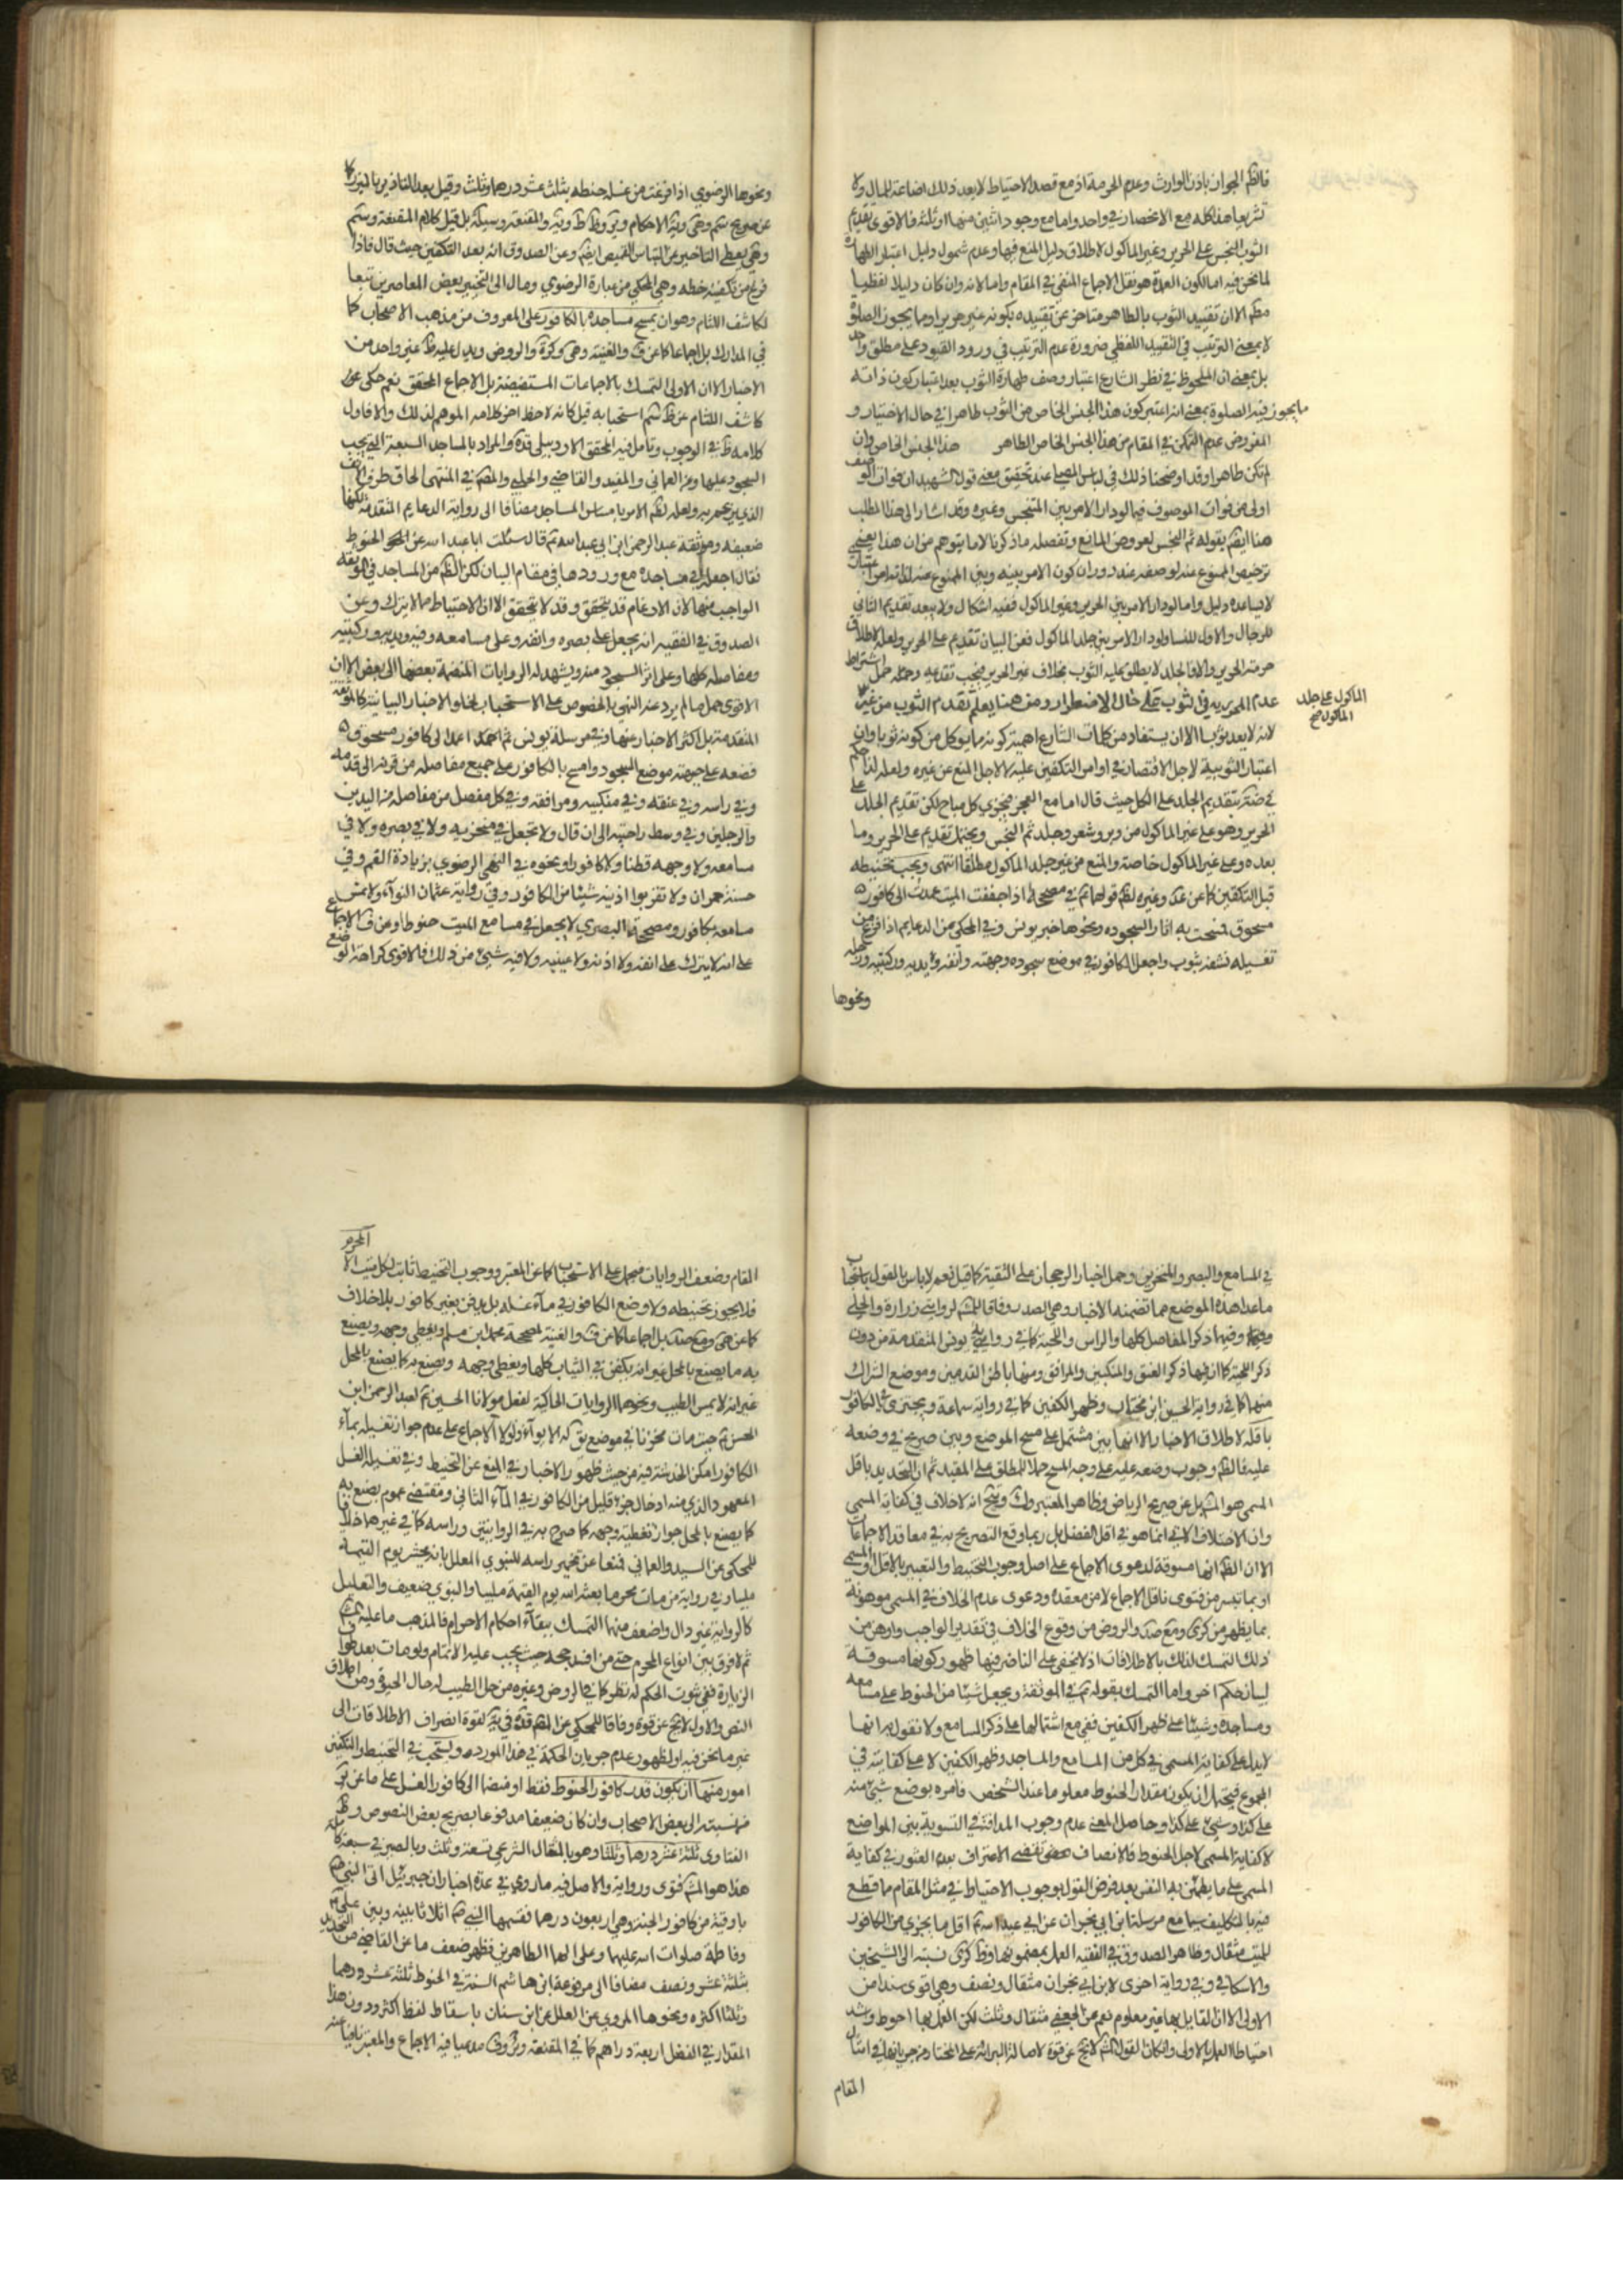 فالظم الجواز باذن الوارث وعدم الحرمة اذ مع قصد الاحتياط لا يعد ذلك اضاعة للمال ولا
تشريعا هذا كله مع الانحصار في واحد واما مع وجود اثنين منها او ثلثة فالاقوى تقديم
الثوب النجس على الحرير وغير المأكول لاطلاق دليل المنع فيها وعدم شمول دليل اعتبار الطهارة
لما نحن فيه اما لكون العمدة هو نقل الاجماع المنفي في المقام واما لانه وان كان دليلا لفظيا
مطم الا ان تقييد الثوب بالطاهر متاخر عن تقييده بكونه غير حرير او مما يجوز الصلوة
لا بمعنى الترتيب في التقييد اللفظي ضرورة عدم الترتيب في ورود القيود على مطلق واحد
بل بمعنى ان الملحوظ في نظر الشارع اعتبار وصف طهارة الثوب بعد اعتبار كون ذاته
ما يجوز فيه الصلوة بمعنى انه اعتبر كون هذا الجنس الخاص من الثوب طاهرا في حال الاختيار و
المفروض عدم التمكن في المقام من هذا الجنس الخاص الطاهر هذا الجنس الخاص وان
لم تكن طاهرا وقد اوضحنا ذلك في لباس المصلي عند تحقيق معنى قول الشهيد ان فوات الوصف
اولى من فوات الموصوف فيما لو دار الامر بين المتنجس وغيره وقد اشار الى هذا المطلب
هنا ايضم بقوله ثم النجس لعروض المانع وتفصله ما ذكرنا لا ما يتوهم من ان هذا يقتضي
ترخيص الممنوع عنه لوصفه عند دوران كون الامر بينه وبين الممنوع عنه لذاته اعتبار
لا يساعده دليل واما لو دار الامر بين الحرير وغير المأكول ففيه اشكال ولا يبعد تقديم الثاني
للرجال والاول للنساء ولو دار الامر بين جلد المأكول فعن البيان تقديم على الحرير ولعله لاطلاق
حرمة الحرير والا فالجلد لا يطلق عليه الثوب بخلاف غير الحرير فيجب تقديمه وحمل اشتراط
عدم الحريرية في ثوب على حال الاضطرار ومن هنا يعلم تقدم الثوب من غير
المأكول على جلد
المأكول صح
لانه لا يعد ثوبا الا ان يستفاد من كلمات الشارع اهمية كونه مما يوكل من كونه ثوبا وان
اعتبار الثوبية لاجل الاقتصار في اوامر التكفين عليه لا لاجل المنع عن غيره ولعله لذا حكم
في بتقديم الجلد على الكل حيث قال اما مع العجز فيجزي كل مباح لكن تقديم الجلد على
الحرير وهو على غير المأكول من وبر وشعر وجلد ثم النجس ويحتمل تقديم على الحرير وما
بعده وعلى غير المأكول خاصة والمنع من غير جلد المأكول مطلقا انتهى ويجب تحنيطه
قبل التكفين كما عن عد وغيره لظم قولهم في مصححة اذا جففت الميت عمدت الى كافور
مسحوق فمسحت به اثار السجود ونحوها خبر يونس وفي المحكي من الدعايم اذا فرغ من
تغسيله نشفه بثوب واجعل الكافور في موضع سجوده وجهته وانفه ويديه وركبتيه ورجليه
ونحوها
ونحوها الرضوي اذا فرغت من غسله حنطه بثلث عشر درهما وثلث وقيل بعد التاذير بالميزر
عن صريح وهي ونية الاحكام و والمقنعة وسيلة بل قيل كلام المقنعة وستم
وهي يعطي التاخير عن الباس القميص ايضم وعن الصدوق انه بعد التكفين حيث قال فاذا
فرغ من تكفينه حنطه وهي المحكي من عبارة الرضوي ومال الى التخيير بعض المعاصرين تبعا
لكاشف اللثام وهو ان يمسح مساجده بالكافور على المعروف من مذهب الاصحاب كما
في المدارك بل اجماعا كما عن ف والغنية وهي وكرة والروض ويدل عليه ظ غير واحد من
الاخبار الا ان الاولى التمسك بالاجماعات المستفيضة بل الاجماع المحقق نعم حكى عن
كاشف اللثام عن استحبابه قيل كانه لاحظ اخر كلامه الموهم لذلك والا فاول
كلامه ظ في الوجوب وتامل فيه المحقق الاردبيلي قده والمراد بالمساجد السبعة التي يجب
السجود عليها وعن العماني و المفيد والقاضي والحلبي والمصم في المنتهى الحاق طرف الانف
الذي يرغم به ولعله لظم الامر بامساس المساجد مضافا الى رواية الدعايم المتقدمة لكنها
ضعيفة وموثقة عبد الرحمن ابن ابي عبد الله قال سئلت ابا عبد الله عن الحنوط
فقال اجعله في مساجده مع ورودها في مقام البيان لكن الظم من المساجد في الموثقة
الواجب منها لان الارغام قد يتحقق وقد لا يتحقق الا ان الاحتياط مما لا يترك وعن
الصدوق في الفقيه انه يجعل على بصره وانفه وعلى مسامعه وفيه ويديه وركبتيه
ومفاصله كلها وعلى اثر السجود منه ويشهد له الروايات المتضمنة بعضها الى بعض الا ان
الاقوى حمل ما لم يرد عنه النهي بالخصوص على الاستحباب لخلو الاخبار البيانية كالموثقة
المتقدمة بل اكثر الاخبار عنها وفي مرسلة يونس ثم اعمد الى كافور مسحوق
فضعه على جبهته موضع السجود وامسح بالكافور على جميع مفاصله من قرنه الى قدمه
وفي راسه وفي عنقه وفي منكبيه ومرافقه وفي كل مفصل من مفاصله من اليدين
والرجلين وفي وسط راحتيه الى ان قال ولا تجعل في منخريه ولا في بصره ولا في
مسامعه ولا وجهه قطنا ولا كافورا ونحوه في النهي الرضوي بزيادة الفم وفي
حسنة حمران ولا تقربوا اذنيه شيئا من الكافور وفي رواية عثمان النوا ولا تمس
مسامعه بكافور ومصححة البصري لا يجعل في مسامع الميت حنوطا وعن ف الاجماع
على انه لا يترك على انفه ولا اذنه ولا عينيه ولا فيه شيئ من ذلك فالاقوى كراهة الوضع
في المسامع والبصر والمنخرين وحمل اخبار الرجحان على التقية كما قيل نعم لا باس بالقول باستحباب
ما عدا هذه الموضع مما تضمنه الاخبار وهي الصدر وفاقا للمشم لروايتي زرارة والحلبي
وفيها ذكر المفاصل كلها والراس واللحية كما في رواية يونس المتقدمة من دون
ذكر اللحية كما ان فيها ذكر العنق والمنكبين والمرافق ومنها باطن القدمين وموضع الشراك
منها كما في رواية الحسين ابن مختار وظهر الكفين كما في رواية سماعة ويجتزي بالكافور
باقله لاطلاق الاخبار الا انها بين مشتمل على مسح الموضع وبين صريح في وضعه
عليه فالظم وجوب وضعه عليه على وجه المسح حملا للمطلق على المقيد ثم ان التحديد باقل
المسمى هو المشم بل عن صريح الرياض وظاهر المعتبر وك و انه لا خلاف في كفاية المسمى
وان الاختلاف الاتي انما هو في اقل الفضل بل ربما وقع التصريح به في معاقد الاجماعات
الا ان الظم انها مسوقة لدعوى الاجماع على اصل وجوب التحنيط والتعبير بالاقل او المسمى
او بما تيسر من فتوى ناقل الاجماع لا من معقده ودعوى عدم الخلاف في المسمى موهونة
بما يظهر من كرى و والروض من وقوع الخلاف في تقدير الواجب واوهن من
ذلك التمسك لذلك بالاطلاقات اذ لا يخفى على الناظر فيها ظهور كونها مسوقة
لبيان حكم اخر واما التمسك بقوله م في الموثقة ويجعل شيئا من الحنوط على مسامعه
ومساجده وشيئا على ظهر الكفين ففي مع اشتمالها على ذكر المسامع ولا نقول به انها
لا يدل على كفاية المسمى في كل من المسامع والمساجد وظهر الكفين لا على كفايته في
المجموع فيحتمل ان يكون مقدار الحنوط معلوما عند الشخص فامره بوضع شيئ منه
على كذا وشيئ على كذا وحاصل المعنى عدم وجوب المداقة في التسوية بين المواضع
لا كفاية المسمى لاجل الحنوط فالانصاف يقتضي الاعتراف بعدم العثور في كفاية
المسمى على ما يطمئن به النفس بعد فرض القول بوجوب الاحتياط في مثل المقام مما قطع
فيه بالتكليف سيما مع مرسلة ابن ابي نجران عن ابي عبد الله م اقل ما يجزي من الكافور
للميت مثقال وظاهر الصدوق في الفقيه العمل بمضمونها وظ كرى نسبته الى الشيخين
والاسكافي وفي رواية اخرى لابن ابي نجران مثقال ونصف وهي اقوى سندا من
الاولى الا ان القايل بها غير معلوم نعم عن الجعفي مثقال وثلث لكن العمل بها احوط واشد
احتياطا العمل بالاولى وان كان لقول المشم لا يخ عن قوة لاصالة البرائة على المختار من جريانها في امثال
المقام
المحرم
المقام وضعف الروايات فيحمل على الاستحباب كما عن المعتبر ووجوب التحنيط ثابت لكل ميت الا
فلا يجوز تحنيطه ولا وضع الكافور في ماء غسله بل يدفن بغير كافور بلا خلاف
كما عن هي و بل اجماعا كما عن ف والغنية لمصححة محمد ابن مسلم ويغطى وجهه ويصنع
به ما يصنع بالمحل غير انه يكفن في الثياب كلها ويغطى وجهه ويصنع به كما يصنع بالمحل
غير انه لا يمس الطيب ونحوها الروايات الحاكية لفعل مولانا الحسين م لعبد الرحمن ابن
الحسن م حيث مات محرما في موضع يق له الابواء ولولا الاجماع على عدم جواز تغسيله بماء
الكافور امكن الخدشة فيه من حيث ظهور الاخبار في المنع عن التحنيط وفي تغسيله الغسل
المعهود الذي منه ادخال جزء قليل من الكافور في الماء الثاني ومقتضى عموم يصنع به
كما يصنع بالمحل جواز تغطية وجهه كما صرح به في الروايتين وراسه كما في غيرها خلافا
للمحكي عن السيد والعماني فمنعا عن تخمير راسه للنبوي المعلل بانه يحشر يوم القيمة
ملبيا وفي رواية من مات محرما بعثه الله يوم القيمة ملبيا والنبوي ضعيف والتعليل
كالرواية غير دال واضعف منها التمسك ببقاء احكام الاحرام فالمذهب ما عليه المشم
ثم لا فرق بين انواع المحرم حتى من افسد حجه حيث يجب عليه الاتمام ولو مات بعد طواف
الزيارة ففي ثبوت الحكم له نظر كما في الروض وغيره من حل الطيب له حال الحيوة ومن اطلاق
النص والاول لا يخ عن قوة وفاقا للمحكي عن المصم قده في ية لقوة انصراف الاطلاقات الى
غير ما نحن فيه او لظهور عدم جريان الحكمة في هذا المورد ويستحب في التحنيط والتكفين
امور منها ان يكون قدر كافور الحنوط فقط او منضما الى كافور الغسل على ما عن ئر
من نسبته الى بعض الاصحاب وان كان ضعيفا مدفوعا بصريح بعض النصوص وظ
الفتاوى ثلثة عشر درهما وثلثا وهو بالمثقال الشرعي تسعة وثلث وبالصيرفي سبعة كاملة
هذا هو المشم فتوى ورواية والاصل فيه ما روي في عدة اخبار ان جبرئيل اتى النبي ص
باوقية من كافور الجنة وهي اربعون درهما فقسمها النبي ص اثلاثا بينه وبين علي م
وفاطمة صلوات الله عليهما وعلى الهما الطاهرين فظهر ضعف ما عن القاضي من التحديد
بثلثة عشر ونصف مضافا الى مرفوعة ابن هاشم السنة في الحنوط ثلثة عشر درهما
وثلثا اكثره ونحوها المروي عن العلل عن ابن سنان باسقاط لفظ اكثره ودون هذا
المقدار في الفضل اربعة دراهم كما في المقنعة و مدعيا فيه الاجماع والمعتبر نافيا عنه